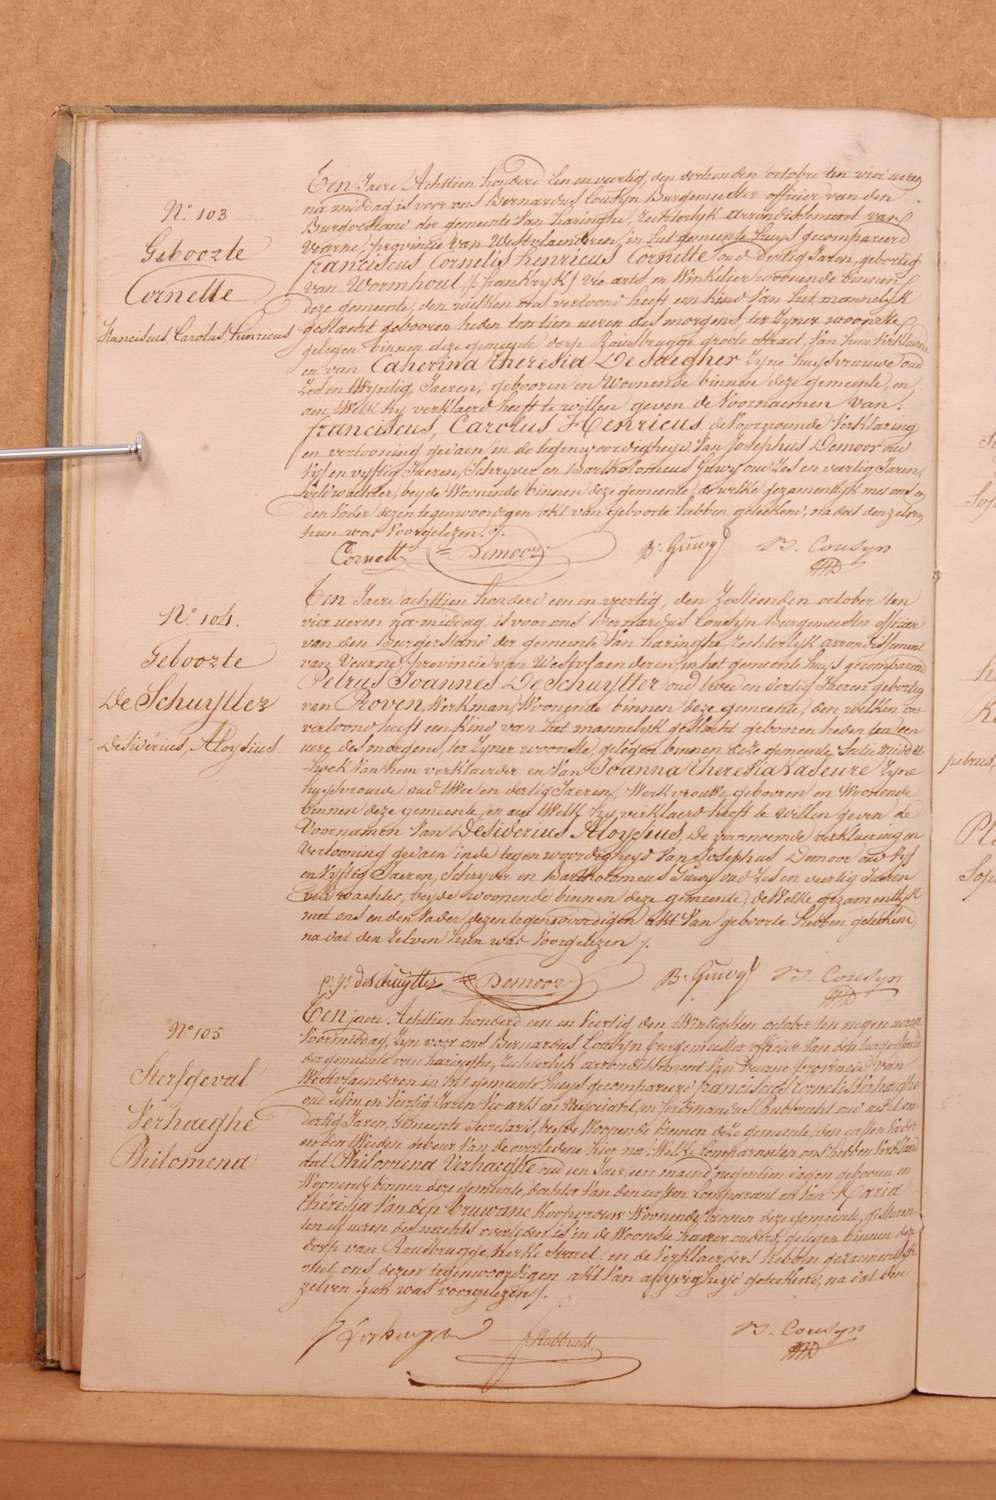 N.° 103
Geboorte
Cornette
Franciscus, Carolus Henricus
Een Jaere Achttien honderd een en veertig, den sestienden october ten vier ueren
na middag is voor ons Bernardus Cousyn Burgemeester officier van den
Burgerstand der gemeente van haringhe, rechterlyk arrondissement van
Veurne, provincie van Westvlaenderen, in het gemeente huys gecompareerd
franciscus Cornelis henricus Cornette oud dertig Jaren, geboortig
van Wormhout (frankryk) vee arts en Winkelier woonende binnen
deze gemeente, den welken ons vertoond heeft een kind van het mannelyk
geslacht gebooren heden ten tien ueren des morgens, ter zyner woonste
gelegen binnen deze gemeente dorp Rousbrugge groote straet, van hem verklaerder
en van Catherina theresia De Saegher zyne huysvrouwe oud
zes en twyntig Jaeren, gebooren en Woonende binnen deze gemeente, en
aen Welk hy verklaerd heeft te willen geven de Voornaemen van
franciscus, Carolus Henricus de Voornoemde Verklaring
en vertooning gedaen in de tegenwoordigheyd van Josephus Demoor oud
Vyf en vyftig Jaeren, Schryver en Bartholomeus Guwy oud Zes en veertig Jaren,
veldwachter, beyde Woonende binnen deze gemeente, de welke gezamentlyk met ons en
den Vader dezen tegenwoordigen akt van geboorte hebben geteekend, na dat den zelven
hun was Voorgelezen ./.
Cornette Demoor B: Guwy B. Cousyn
N.° 104.
Geboorte
De Schuytter
Desidérius, Aloysius
Een Jaere achttien honderd een en veertig, den Zestienden october ten
vier ueren na middag, is voor ons Bernardus Cousyn Burgemeester officier
van den Burgerstand der gemeente van haringhe, rechterlyk arrondissement
van Veurne, provincie van Westvlaenderen, in het gemeente huys gecompareerd
Petrus Joannes De Schuytter oud twee en dertig Jaeren geboortig
van Roven, Werkman, Woonende binnen deze gemeente, den welken ons
vertoond heeft een kind van het mannelyk geslacht gebooren heden ten een
uere des morgens, ter zyner woonste, gelegen binnen deze gemeente,
hoek van hem verklaerder en van Joanna theresia Laseure zyne
huysvrouwe oud twee en dertig Jaeren, Werkvrouwe gebooren en Woonende
binnen deze gemeente, en aen Welk hy verklaerd heeft te willen geven de
Voornamen van Desiderius Aloysius, De voornoemde verklaering en
Vertooning gedaen in de tegenwoordigheyd van Josephus Demoor oud vyf
en Vyftig Jaeren, Schryver en Bartholomeus Guwy oud Zes en veertig Jaeren
veldwachter, beyde woonende binnen deze gemeente, de Welke gezamentlyk
met ons en den Vader dezen tegenwoordigen akt van geboorte hebben geteekend,
na dat den Zelven hun was Voorgelezen ./.
p: j: deschuytter Demoor B: Guwy B. Cousyn
N° 105
Sterfgeval
Verhaeghe
Philomena
Een jaere Achttien honderd een en veertig den twintigsten october ten negen ueren
Voormiddag, Zyn voor ons Bernardus Cousyn burgemeester officier van den burgerstand
der gemeente van haringhe, rechterlyk arrondissement van Veurne provincie van
Westvlaenderen in het gemeente huys gecompareerd franciscus Cornelis Verhaeghe
oud Zesen en Veertig Jaren Vee arts en Negociant, en ferdinandus Rubbrecht oud acht en
dertig Jaren, gemeente Secretaris, beyde Woonende binnen deze gemeente, den eersten Vader
en den tweeden gebeur van de overledene hier na, Welke Comparanten ons hebben Verklaerd
dat Philomena Verhaeghe oud een Jaer een maend negentien dagen gebooren en
Woonende binnen deze gemeente, dochter van den eersten Comparant en van Maria
thérésia Van den Bruwane Koopvrouw Woonende binnen deze gemeente, gisteren
ten elf ueren des nachts overleden is in de Woonste haerer ouders, gelegen binnen deze
dorp van Rousbrugge, kerke Straet en de Verklaerders hebben gezamentlyk
met ons dezen tegenwoordigen akt van aflyvigheyd geteekend, na dat den
zelven hun was voorgelezen ./.
f Verhaeghe f. Rubbrecht B. Cousyn
petrus,